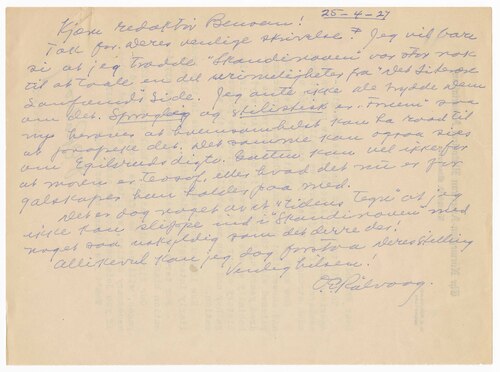 25-4-27
Kjære redaktør Benson!
Tak for Deres venlige skrivelse. Jeg vil bare
si at jeg trodde "Skandinaven" var stor nok
til at taale en del av rimeligheter fra "Det Literære
Samfunds" Side. Jeg ante ikke at trykke dem
om det. Sproglig og stilistisk er "Moen" saa
at forsøke det. Det samme kan ogsaa sies
om Egilsruds digte. Saken kan vel ikke for
at moen er teosof, eller hvad det nu er for
galskaper han holder paa med.
Det er dog noget av et "tidens tegn" at jeg
ikke kan slippe ind i "Skandinaven" med
noget saa uskyldig som det derre der!
Allikevel kan jeg dog forstaa deres stilling
Venlig hilsen!
O. E. Rølvaag.